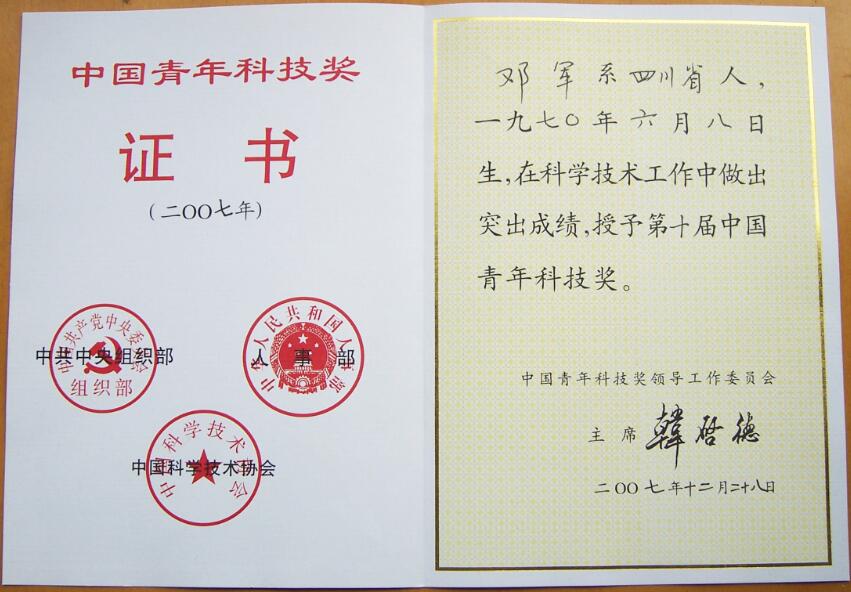 中国青年科技奖
证 书
（二〇〇七年）
中国共产党中央委员会
组织部
中共中央组织部
中华人民共和国人事部
人 事 部
中国科学技术协会
中国科学技术协会
邓 军系四川省人，
一九七〇年六月八日
生，在科学技术工作中做出
突出成绩，授予第十届中国
青年科技奖。
中国青年科技奖领导工作委员会
主 席 韩启德
二〇〇七年十二月二十八日